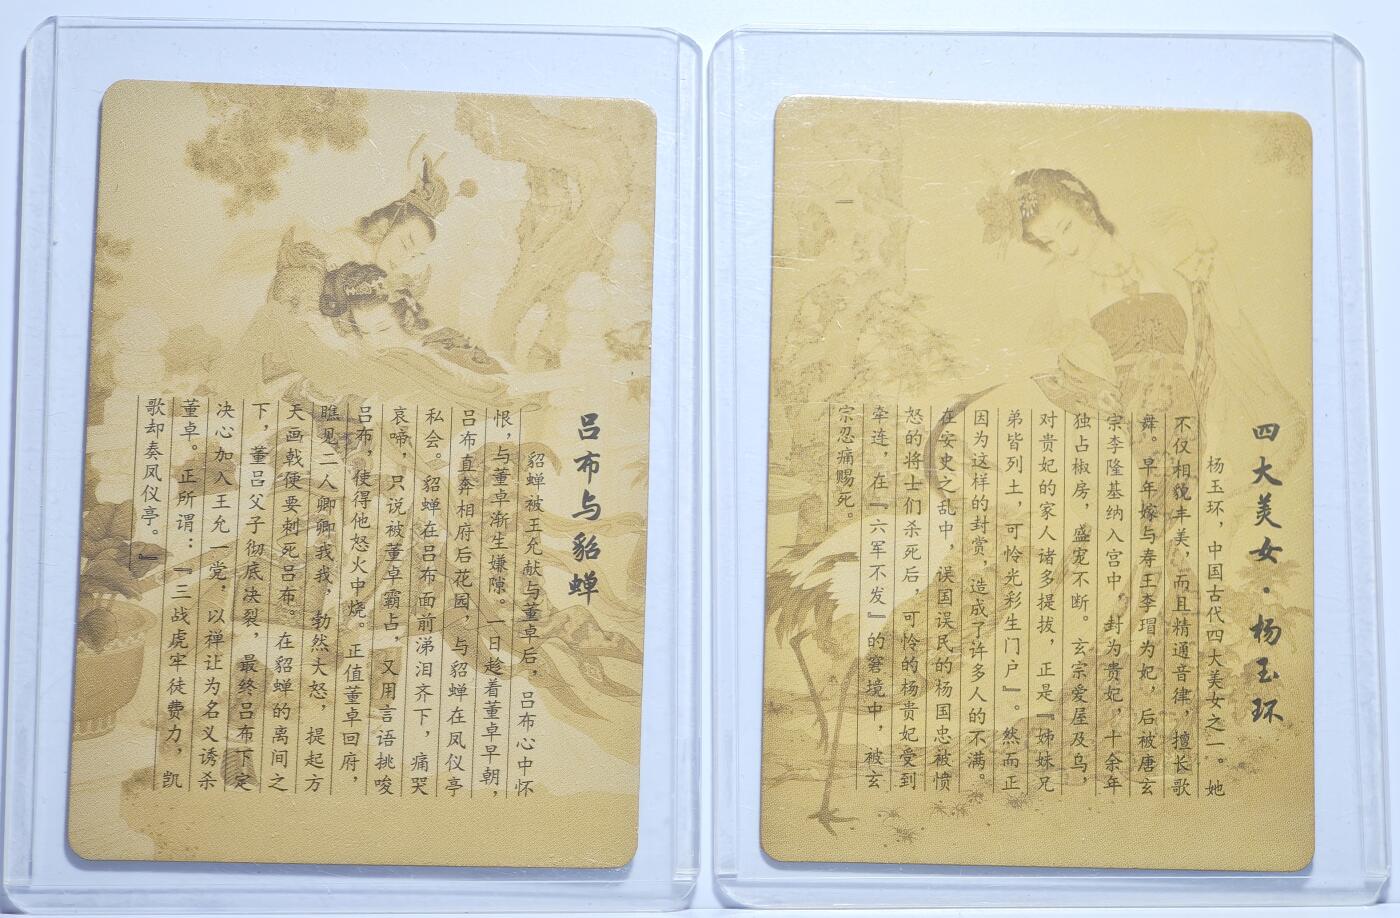 吕布与貂蝉
貂蝉被王允献与董卓后，吕布心中怀
恨，与董卓渐生嫌隙。一日趁着董卓早朝，
吕布直奔相府后花园，与貂蝉在凤仪亭
私会。貂蝉在吕布面前涕泪齐下，痛哭
哀啼，只说被董卓霸占，又用言语挑唆
吕布，使得他怒火中烧。正值董卓回府，
瞧见二人卿卿我我，勃然大怒，提起方
天画戟便要刺死吕布。在貂蝉的离间之
下，董吕父子彻底决裂，最终吕布下定
决心加入王允一党，以禅让为名义诱杀
董卓。正所谓：『三战虎牢徒费力，凯
歌却奏凤仪亭。』
四大美女·杨玉环
杨玉环，中国古代四大美女之一。她
不仅相貌丰美，而且精通音律，擅长歌
舞。早年嫁与寿王李瑁为妃，后被唐玄
宗李隆基纳入宫中，封为贵妃，十余年
独占椒房，盛宠不断。玄宗爱屋及乌，
对贵妃的家人诸多提拔，正是『姊妹兄
弟皆列土，可怜光彩生门户』。然而正
因为这样的封赏，造成了许多人的不满。
在安史之乱中，误国误民的杨国忠被愤
怒的将士们杀死后，可怜的杨贵妃受到
牵连，在『六军不发』的窘境中，被玄
宗忍痛赐死。